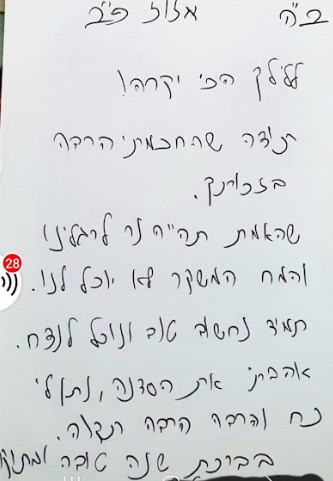 ב"ה אלול פ"ב
ללילך הכי יקרה!
תודה שהתחכמתי הרבה
בזכותך.
שהאמת תהייה נר לרגלינו
והמח המשקר לא יוכל לנו.
תמיד נחשוב טוב ונוכל לנצח.
אהבתי את הסדנה, נתן לי
כח והרבה הרבה תקוה.
בברכת שנה טובה ומתוקה
28